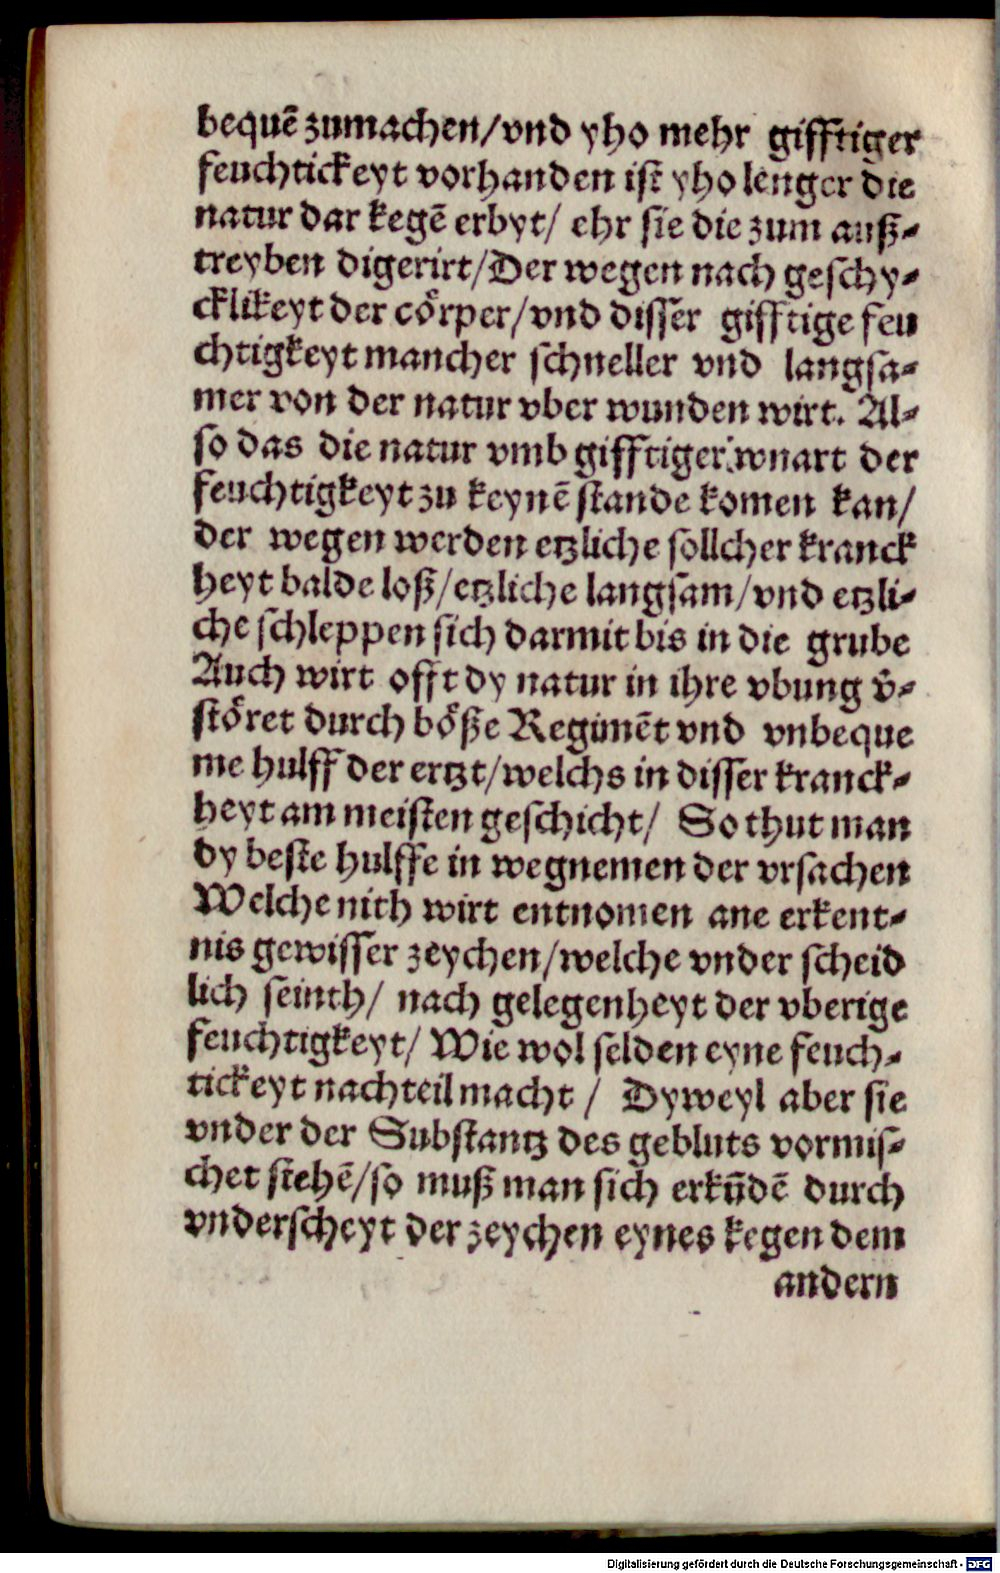 bequē zumachen/vnd yho mehr gifftiger
feuchtickeyt vorhanden ist yho lenger die
natur dar kegē erbyt/ ehr sie die zum auß⸗
treyben digerirt/Der wegen nach geschy⸗
cklikeyt der cörper/vnd disser gifftige feu
chtigkeyt mancher schneller vnd langsa⸗
mer von der natur vber wunden wirt. Al⸗
so das die natur vmb gifftiger wnart der
feuchtigkeyt zu keynē stande komen kan/
der wegen werden etzliche sollcher kranck
heyt balde loß/etzliche langsam/vnd etzli⸗
che schleppen sich darmit bis in die grube
Auch wirt offt dy natur in ihre vbung v̄⸗
störet durch böße Regimēt vnd vnbeque
me hulff der ertzt/welchs in disser kranck⸗
heyt am meisten geschicht/ So thut man
dy beste hulffe in wegnemen der vrsachen
Welche nith wirt entnomen ane erkent⸗
nis gewisser zeychen/welche vnder scheid
lich seinth/ nach gelegenheyt der vberige
feuchtigkeyt/ Wie wol selden eyne feuch⸗
tickeyt nachteil macht / Dyweyl aber sie
vnder der Substantz des gebluts vormis⸗
chet stehē/so muß man sich erkūdē durch
vnderscheyt der zeychen eynes kegen dem
andern
Digitalisierung gefördert durch die Deutsche Forschungsgemeinschaft - DFG